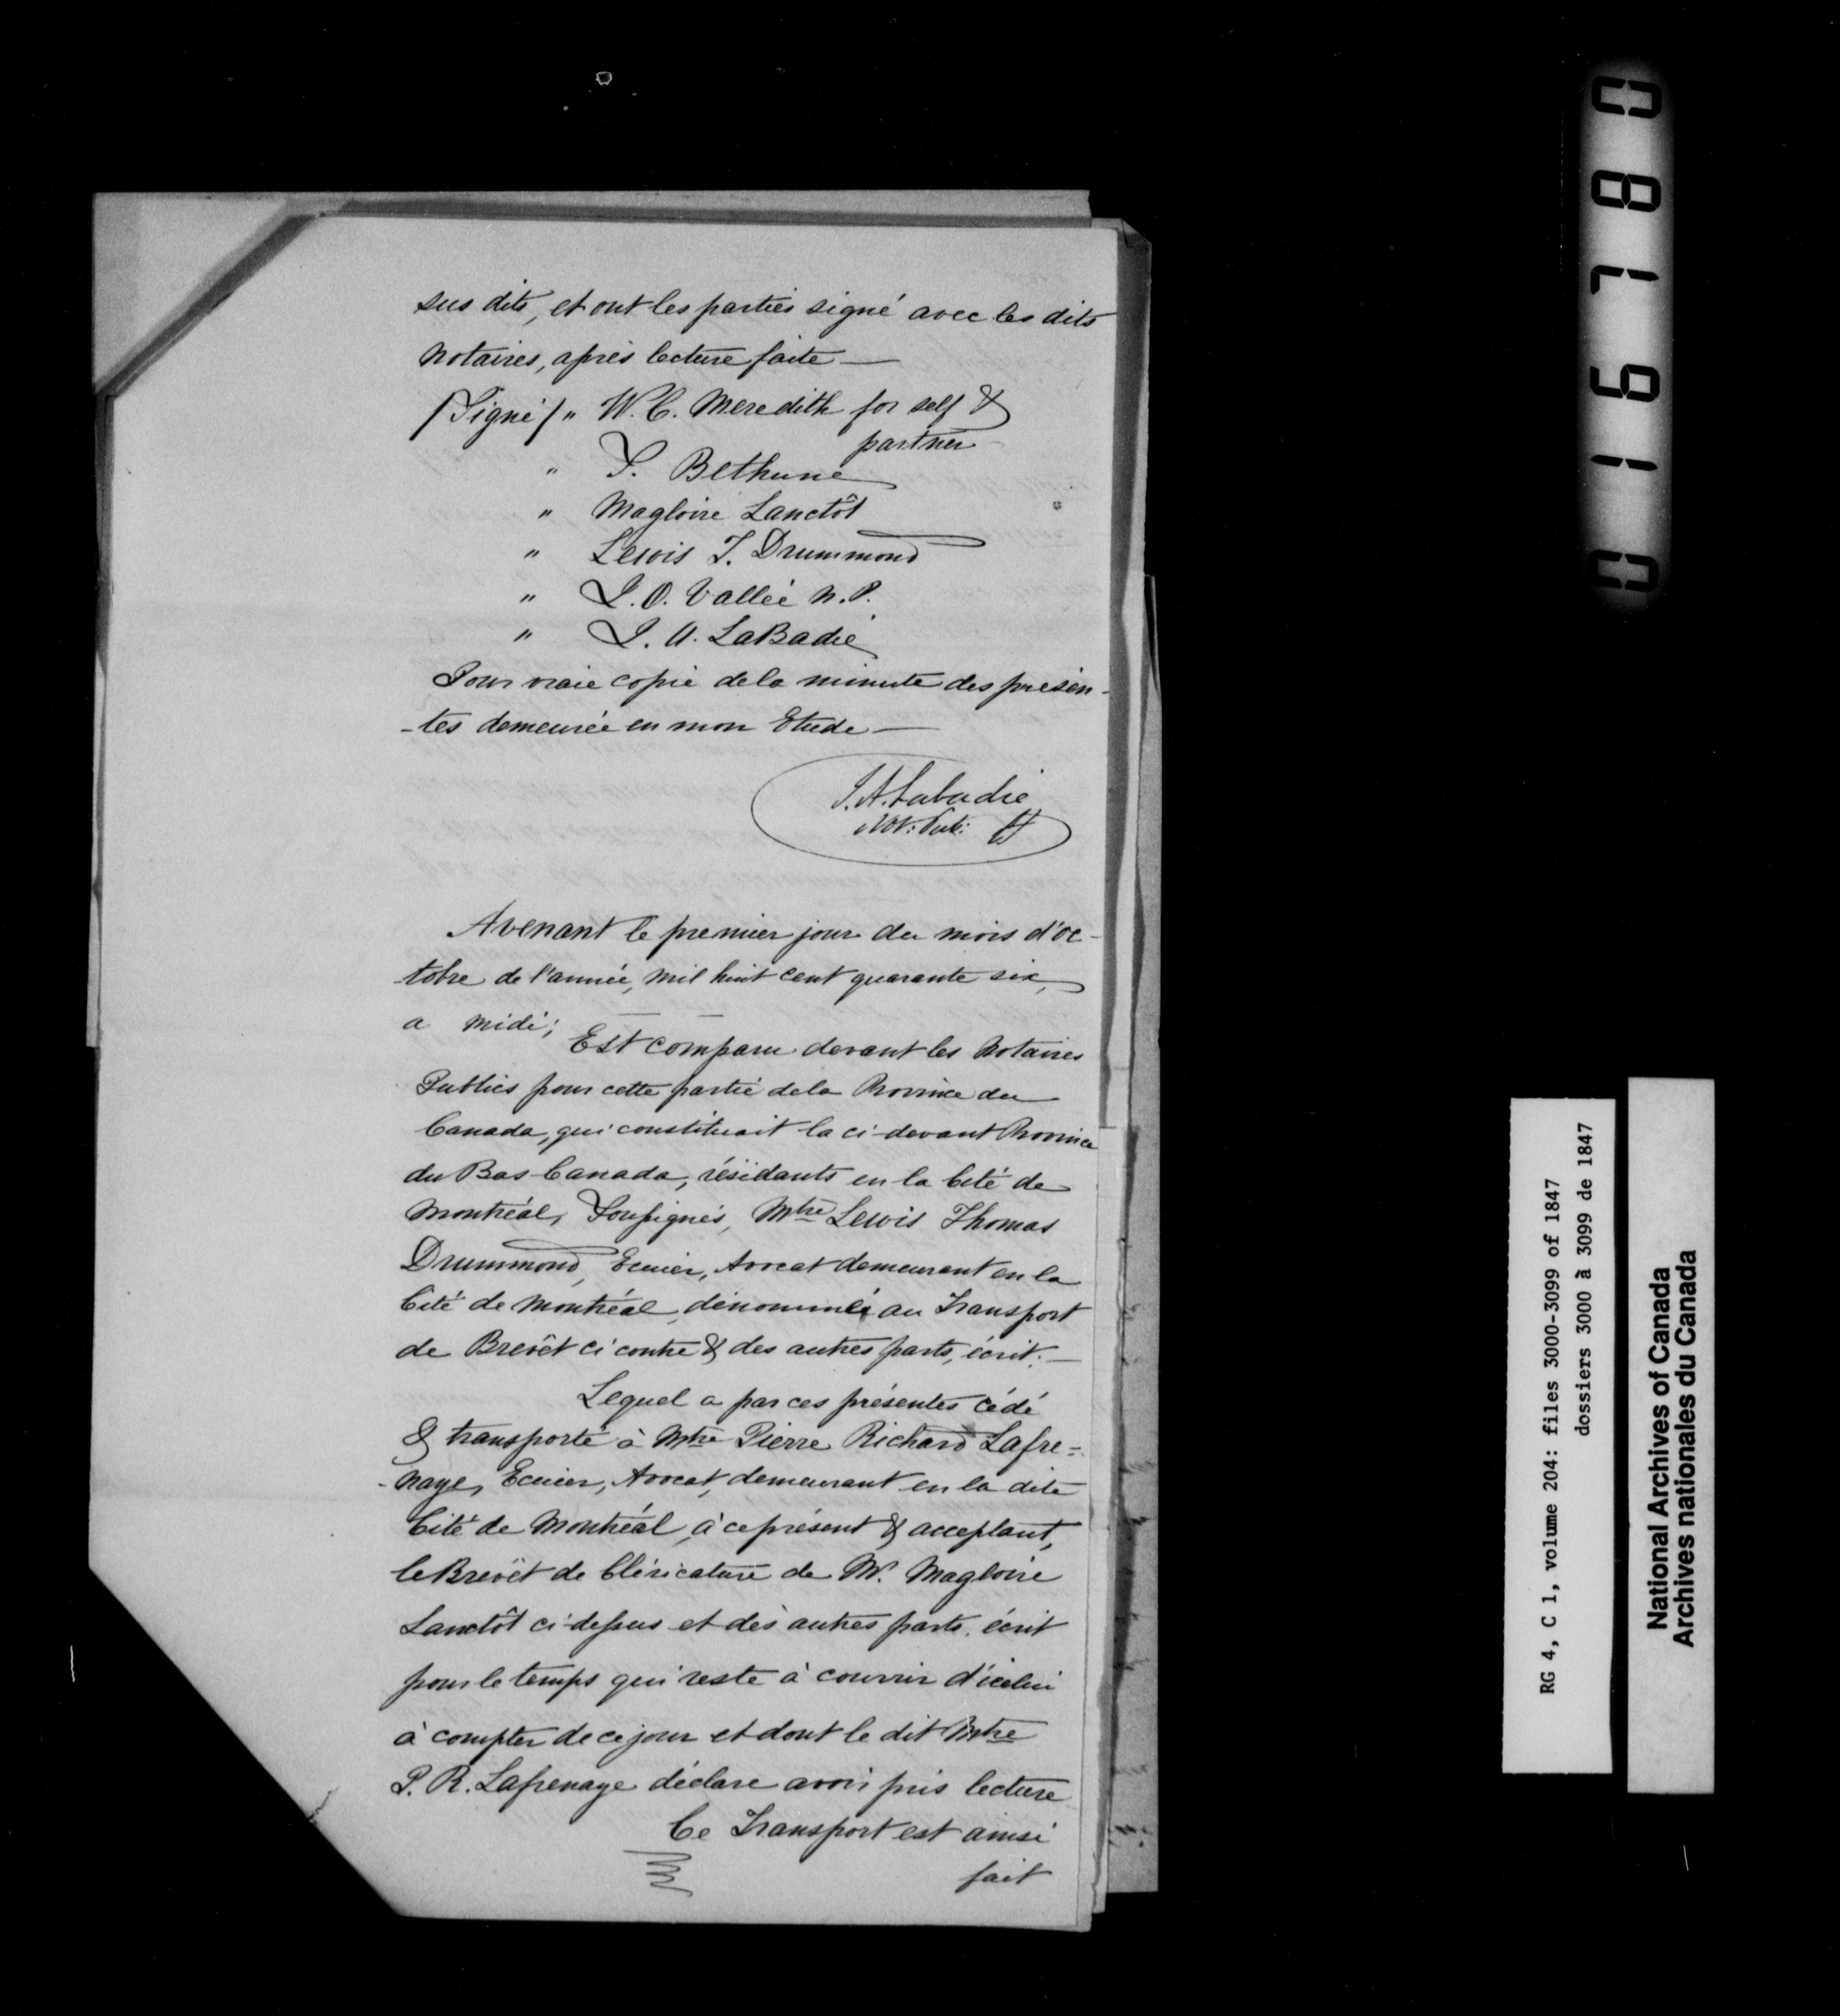 sus dits, et ont les parties signé avec les dits
Notaires, après lecture faite —
/Signé/ " W. C. Meredith for self &
partner
" S. Bethune
" Magloire Lanctôt
" Lewis T. Drummond
" J. O. Vallée N. P.
" J. A. LaBadie
Pour vraie copie de la minute des presen-
-tes demeurée en mon Etude —
J. A. Labadie
Not: Pub:
Avenant le premier jour du mois d'oc-
-tobre de l'année, mil huit cent quarante six,
a midi;
Est comparu devant les Notaires
Publics pour cette partie de la Province du
Canada, qui constituait la ci-devant Province
du Bas Canada, résidants en la Cité de
Montréal, Soussignés, Mtre Lewis Thomas
Drummond, Ecuier, Avocat demeurant en la
Cité de Montréal, dénommé au Transport
de Brevêt ci contre & des autres parts, écrit. —
Lequel a par ces présentes cédé
& transporté à Mtre Pierre Richard Lafre=
-naye, Ecuier, Avocat, demeurant en la dite
Cité de Montréal, à ce présent & acceptant,
le Brevêt de Cléricature de Mr. Magloire
Lanctôt ci-dessus et des autres parts, écrit
pour le temps qui reste à courrir d'icelui
à compter de ce jour et dont le dit Mtre
P. R. Lafrenaye déclare avoir pris lecture
Ce Transport est ainsi
fait
016780
RG 4, C 1, volume 204: files 3000-3099 of 1847
dossiers 3000 à 3099 de 1847
National Archives of Canada
Archives nationales du Canada